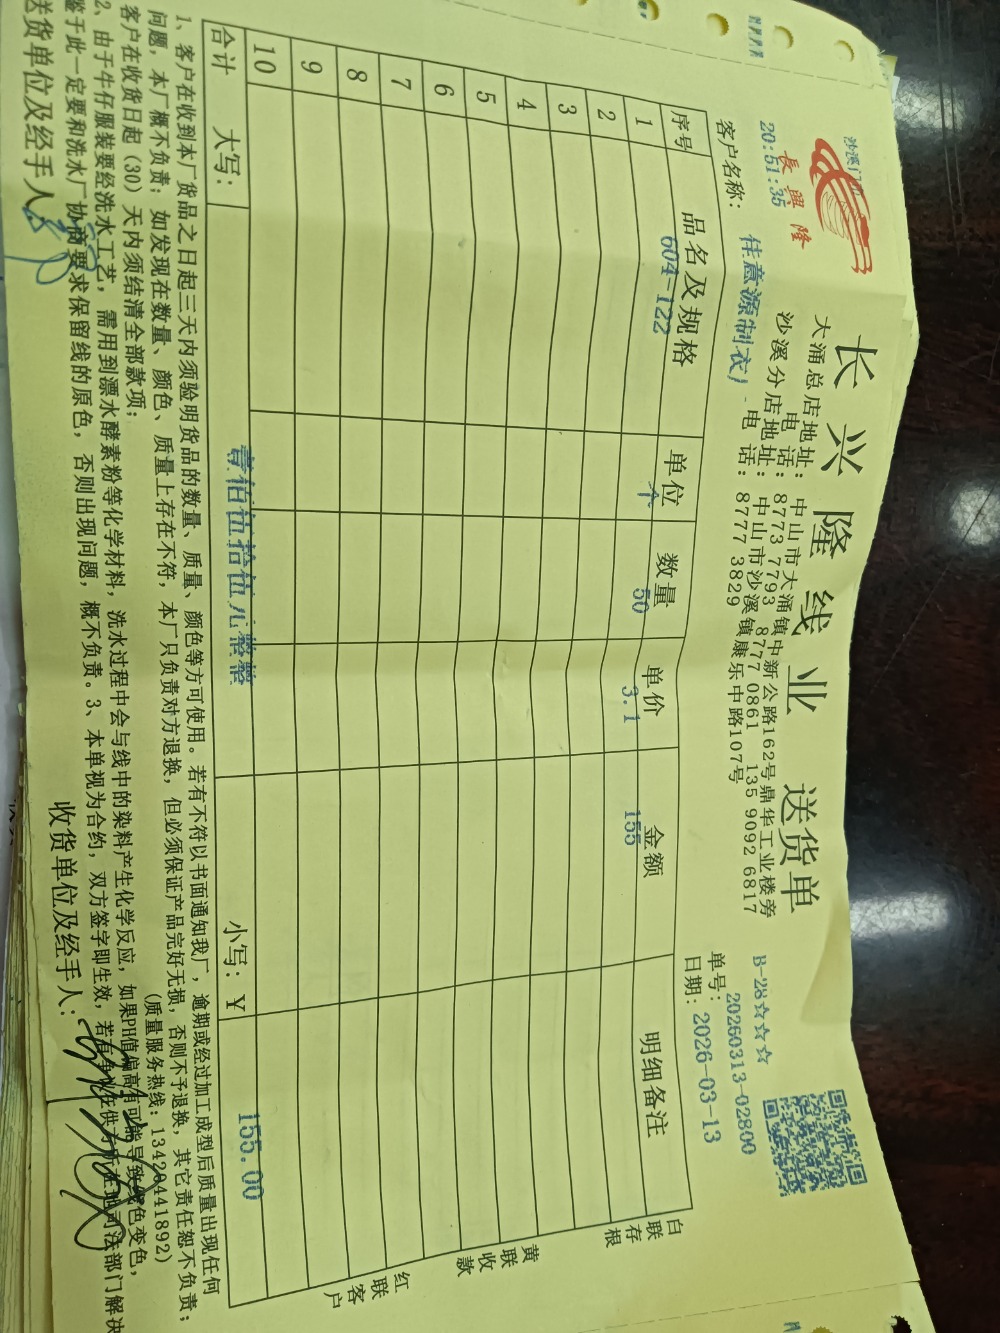 沙溪门
20:51:35
長興隆
长兴隆线业 送货单
大涌总店地址：中山市大涌镇中新公路162号鼎华工业楼旁
电 话：8773 7793 8777 0861 135 9092 6817
沙溪分店地址：中山市沙溪镇康乐中路107号
电 话：8777 3829
B-28☆☆☆
单号：20260313-02800
客户名称：佳意源制衣厂
日期：2026-03-13
序号 品名及规格 单位 数量 单价 金额 明细备注
1 604-122 个 50 3.1 155
2
3
4
5
6
7
8
9
10
合计 大写：壹佰伍拾伍元整整 小写：￥ 155.00
白联存根
黄联收款
红联客户
1、客户在收到本厂货品之日起三天内须验明货品的数量、质量、颜色等方可使用。若有不符以书面通知我厂，逾期或经过加工成型后质量出现任何
问题，本厂概不负责；如发现在数量、颜色、质量上存在不符，本厂只负责对方退换，但必须保证产品完好无损，否则不予退换，其它责任恕不负责；
客户在收货日起（30）天内须结清全部款项； （质量服务热线：13420441892）
2、由于牛仔服装要经洗水工艺，需用到漂水酵素粉等化学材料，洗水过程中会与线中的染料产生化学反应，如果PH值偏高有可能导致线色变色，
鉴于此一定要和洗水厂协商要求保留线的原色，否则出现问题，概不负责。3、本单视为合约，双方签字即生效，若有争议在供方所在地司法部门解决
送货单位及经手人： 收货单位及经手人：